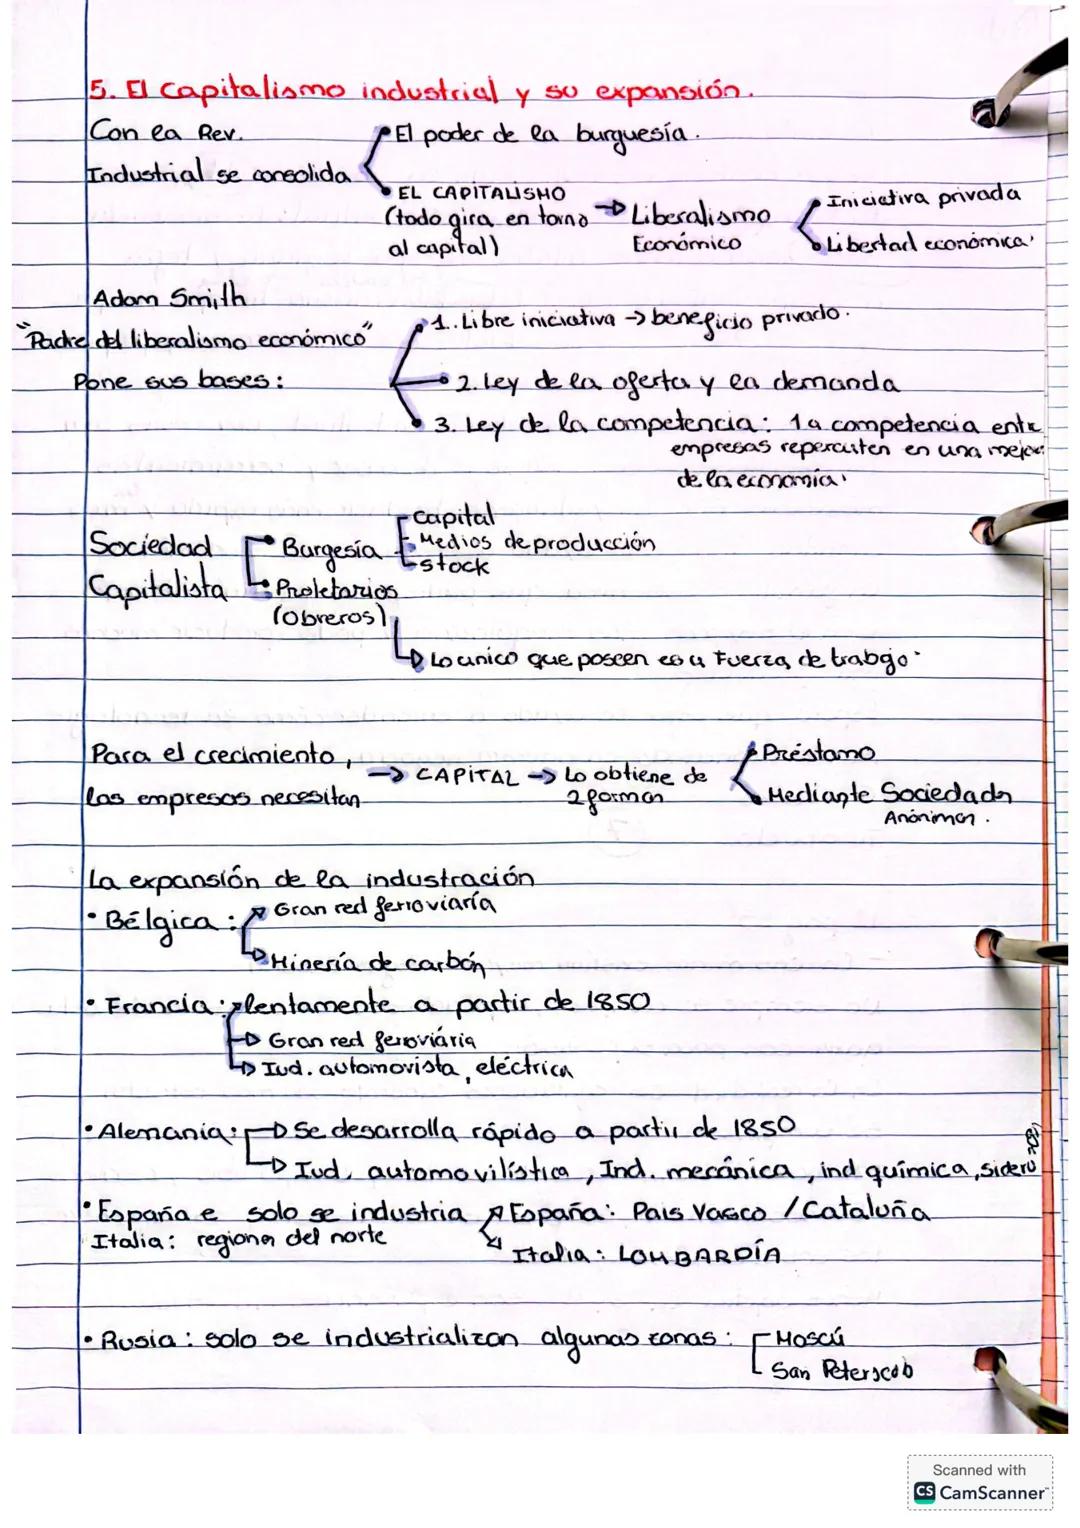 5. El Capitalismo industrial y su expansión.
Con la Rev.
Industrial se consolida
El poder de la burguesía.
EL CAPITALISMO
(todo gira en torno
al capital)
→ Liberalismo
Económico
Iniciativa privada
Libertad económica.
Adam Smith
"Padre del liberalismo económico"
Pone sus bases:
1. Libre iniciativa → beneficio privado.
2. Ley de la oferta y la demanda
3. Ley de la competencia: la competencia entre
empresas repercuten en una mejora
de la economía.
Sociedad
Capitalista
Burgesía
Capital
Medios de producción
stock
Proletarios
(Obreros)
Lo unico que poseen es u Fuerza de trabajo.
Para el crecimiento,
las empresas necesitan
→ CAPITAL → Lo obtiene de
2 formas
Préstamo
Mediante Sociedads
Anónimas.
La expansión de la industración
• Bélgica:
Gran red ferroviaría
Minería de carbón
• Francia: lentamente a partir de 1850
Gran red ferroviária
Iud. automovista, eléctrica
• Alemania:
Se desarrolla rápido a partir de 1850
Iud. automovilística, Ind. mecánica, ind química, sideru
• España e solo se industria
Italia: regiones del norte
España: Pais Vasco / Cataluña
Italia: LOMBARDÍA
• Rusia: solo se industrializan algunas zonas:
Moscú
San Peterscob
Scanned with
CS CamScanner